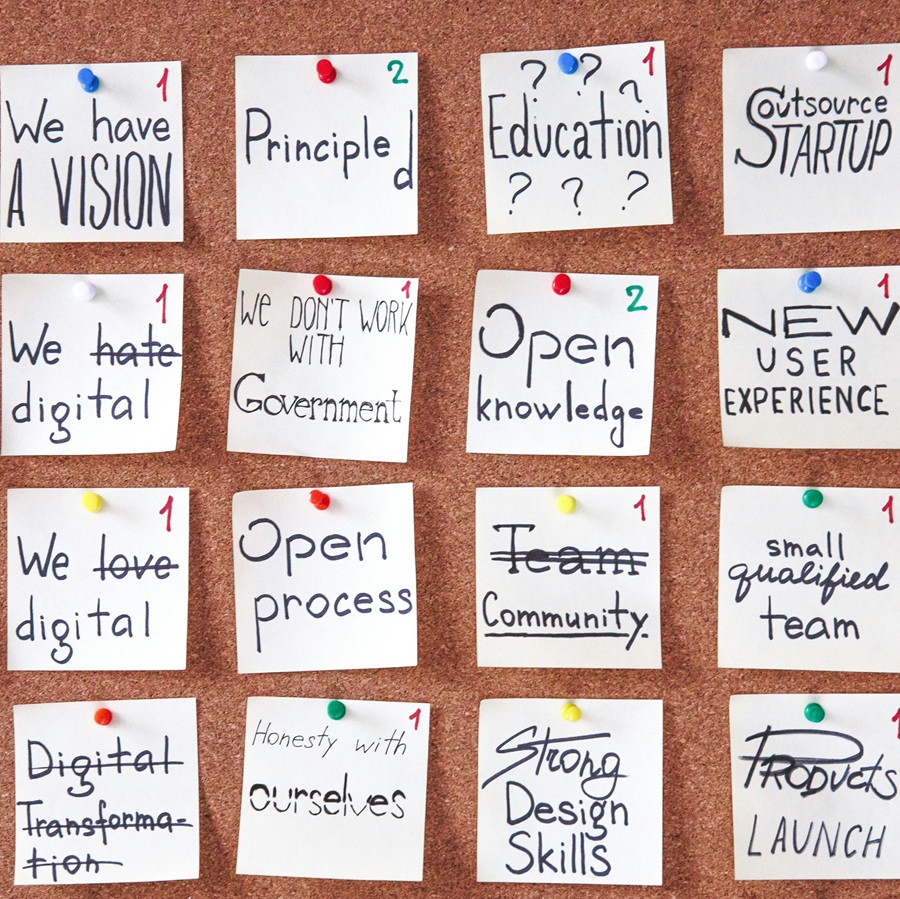 1
We have
A VISION
2
Principle
d
? ? 1
?
Education
? ? ?
1
Outsource
STARTUP
1
We hate
digital
1
WE DON'T WORK
WITH
Government
2
Open
knowledge
1
NEW
USER
EXPERIENCE
1
We love
digital
Open
process
1
Team
Community.
1
small
qualified
team
Digital
Transforma-
tion
1
Honesty with
ourselves
Strong
Design
Skills
1
PRODUCTS
LAUNCH